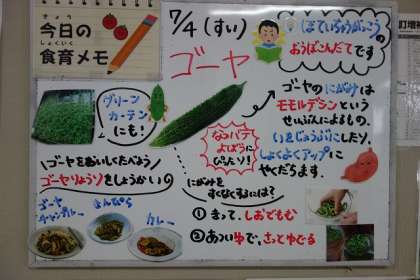 きょう
今日の
しょくいく
食育メモ
7/4 (すい)
ゴーヤ
ほていちゅうがっこう
のおうぼこんだてです
グリーン
カーテン
にも!
なつバテ
よぼうに
ぴったり!
ゴーヤのにがみは
モモルデシンという
せいぶんによるもの。
いをじょうぶにしたり、
しょくよくアップに
やくだちます。
\ゴーヤをおいしくたべよう/
ゴーヤりょうりをしょうかい
ゴーヤ
チャンプルー
きんぴら
カレー
にがみを
すくなくするには?
①きって、しおでもむ
②あついゆで、さっとゆでる